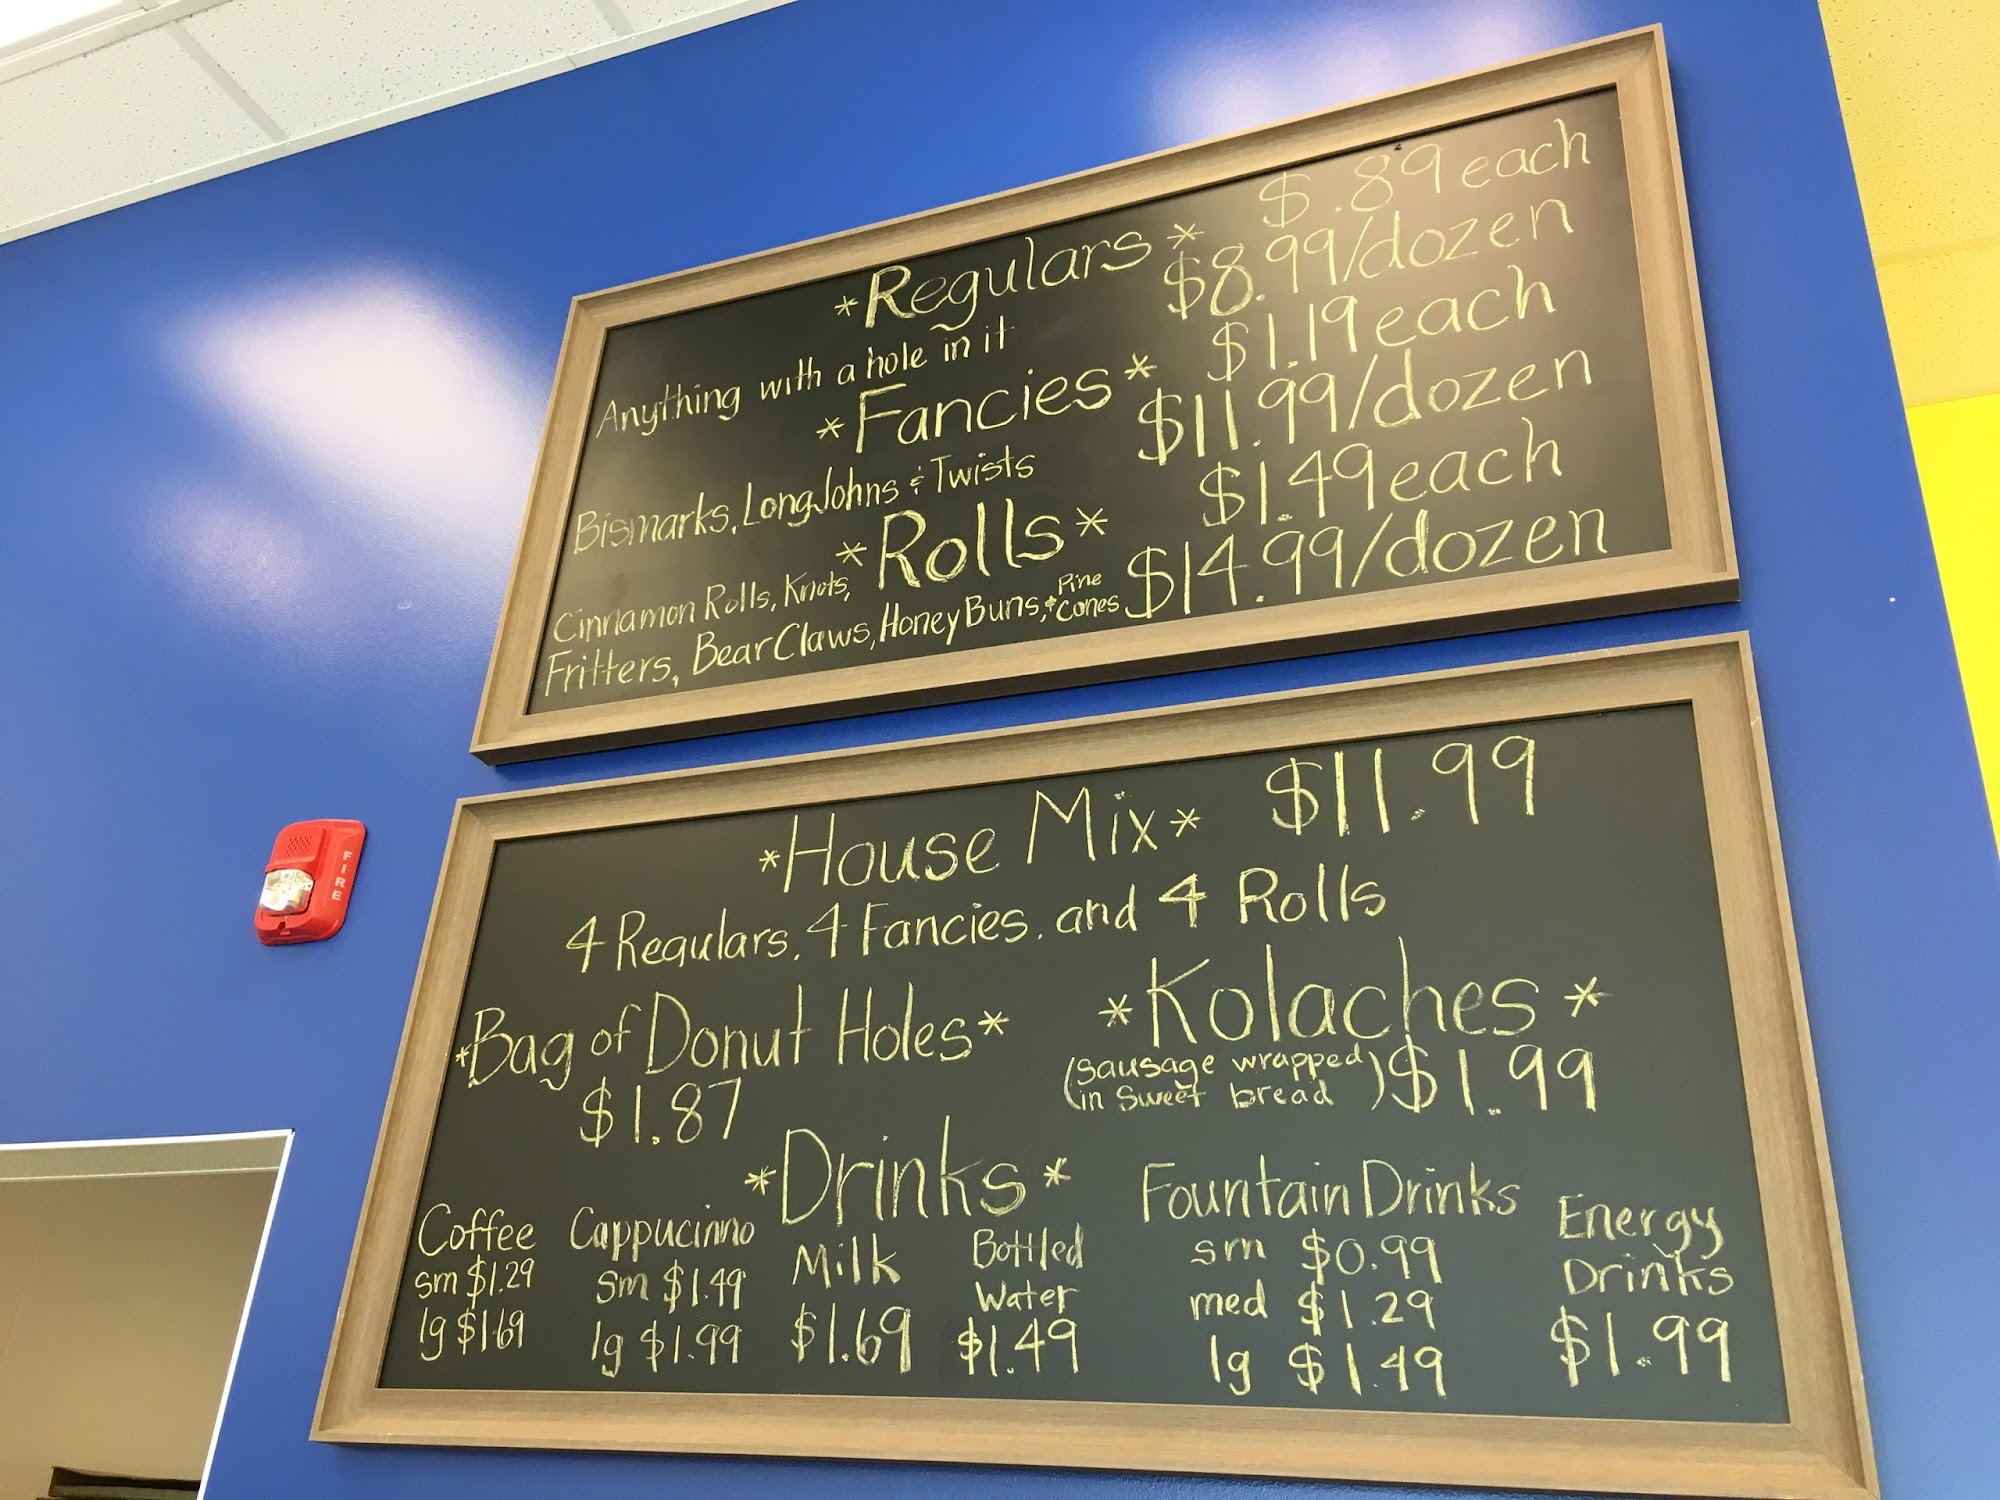 *Regulars* $.89 each
$8.99/dozen
Anything with a hole in it
*Fancies* $1.19 each
$11.99/dozen
Bismarks, Long Johns & Twists
*Rolls* $1.49 each
$14.99/dozen
Cinnamon Rolls, Knots,
Fritters, Bear Claws, Honey Buns, & Pine Cones
*House Mix* $11.99
4 Regulars, 4 Fancies, and 4 Rolls
*Bag of Donut Holes*
$1.87
*Kolaches*
(sausage wrapped
in sweet bread) $1.99
*Drinks*
Coffee
sm $1.29
lg $1.69
Cappucinno
sm $1.49
lg $1.99
Milk
$1.69
Bottled
Water
$1.49
Fountain Drinks
sm $0.99
med $1.29
lg $1.49
Energy
Drinks
$1.99
FIRE